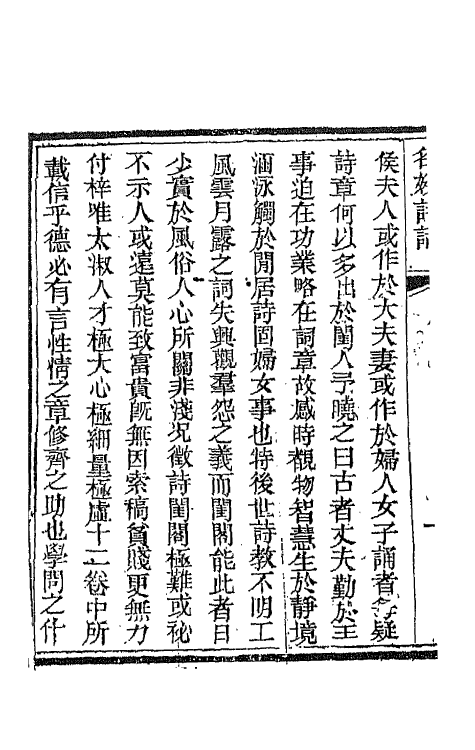 名媛詩話
侯夫人或作於大夫妻或作於婦人女子誦者每疑
詩章何以多出於閨人予曉之曰古者丈夫勤於王
事迫在功業略在詞章故感時觀物智慧生於靜境
涵泳觸於閒居詩固婦女事也特後世詩教不明工
風雲月露之詞失興觀羣怨之義而閨閣能此者日
少實於風俗人心所關非淺况徵詩閨閣極難或祕
不示人或遠莫能致富貴旣無因索稿貧賤更無力
付梓唯太淑人才極大心極細量極虛十二卷中所
載信乎德必有言性情之章修齊之助也學問之什